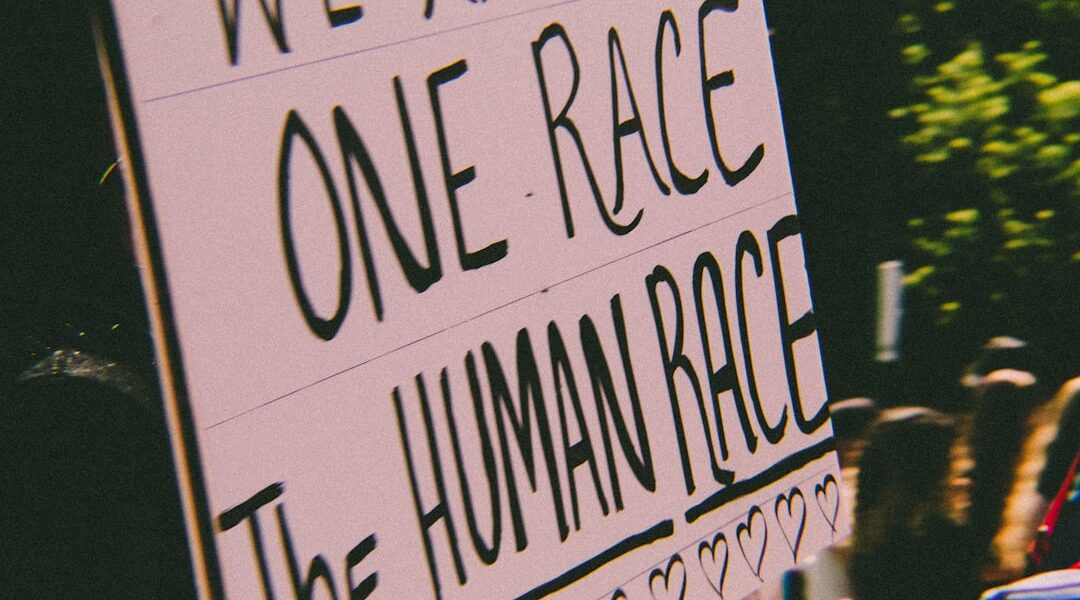 WE
ONE RACE
The HUMAN RACE